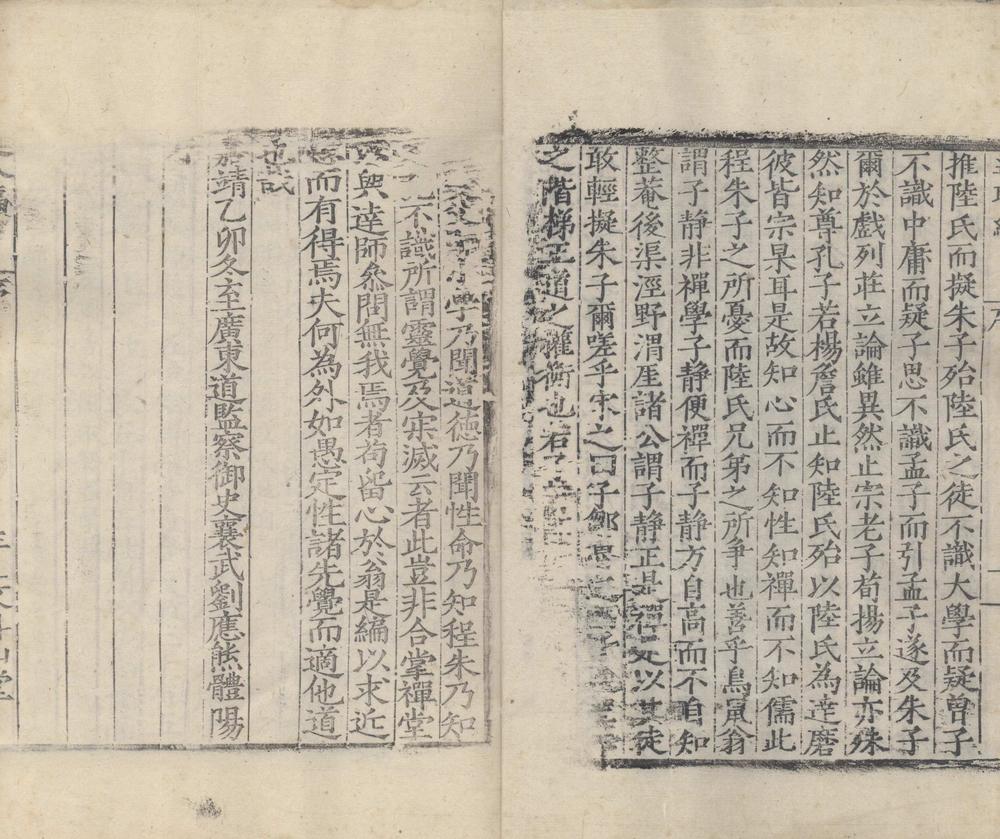 推陸氏而擬朱子殆陸氏之徒不識大學而疑曾子
不識中庸而疑子思不識孟子而引孟子遂及朱子
爾於戲列莊立論雖異然止宗老子荀揚立論亦殊
然知尊孔子若楊詹氏止知陸氏殆以陸氏為達磨
彼皆宗杲耳是故知心而不知性知禪而不知儒此
程朱子之所憂而陸氏兄弟之所爭也善乎鳥鼠翁
謂子靜非禪學子靜便禪而子靜方自高而不自知
整菴後渠涇野渭厓諸公謂子靜正是禪以其徒
敢輕擬朱子爾嗟乎宋之曰子
之階梯王道之權衡也若
學乃聞道德乃聞性命乃知程朱乃知
不識所謂靈覺及宋滅云者此豈非合掌禪堂
與達師叅問無我焉者苟留心於翁是編以求近
而有得焉夫何為外如愚定性諸先覺而適他道
也哉
靖乙卯冬至廣東道監察御史襄武劉應熊體陽